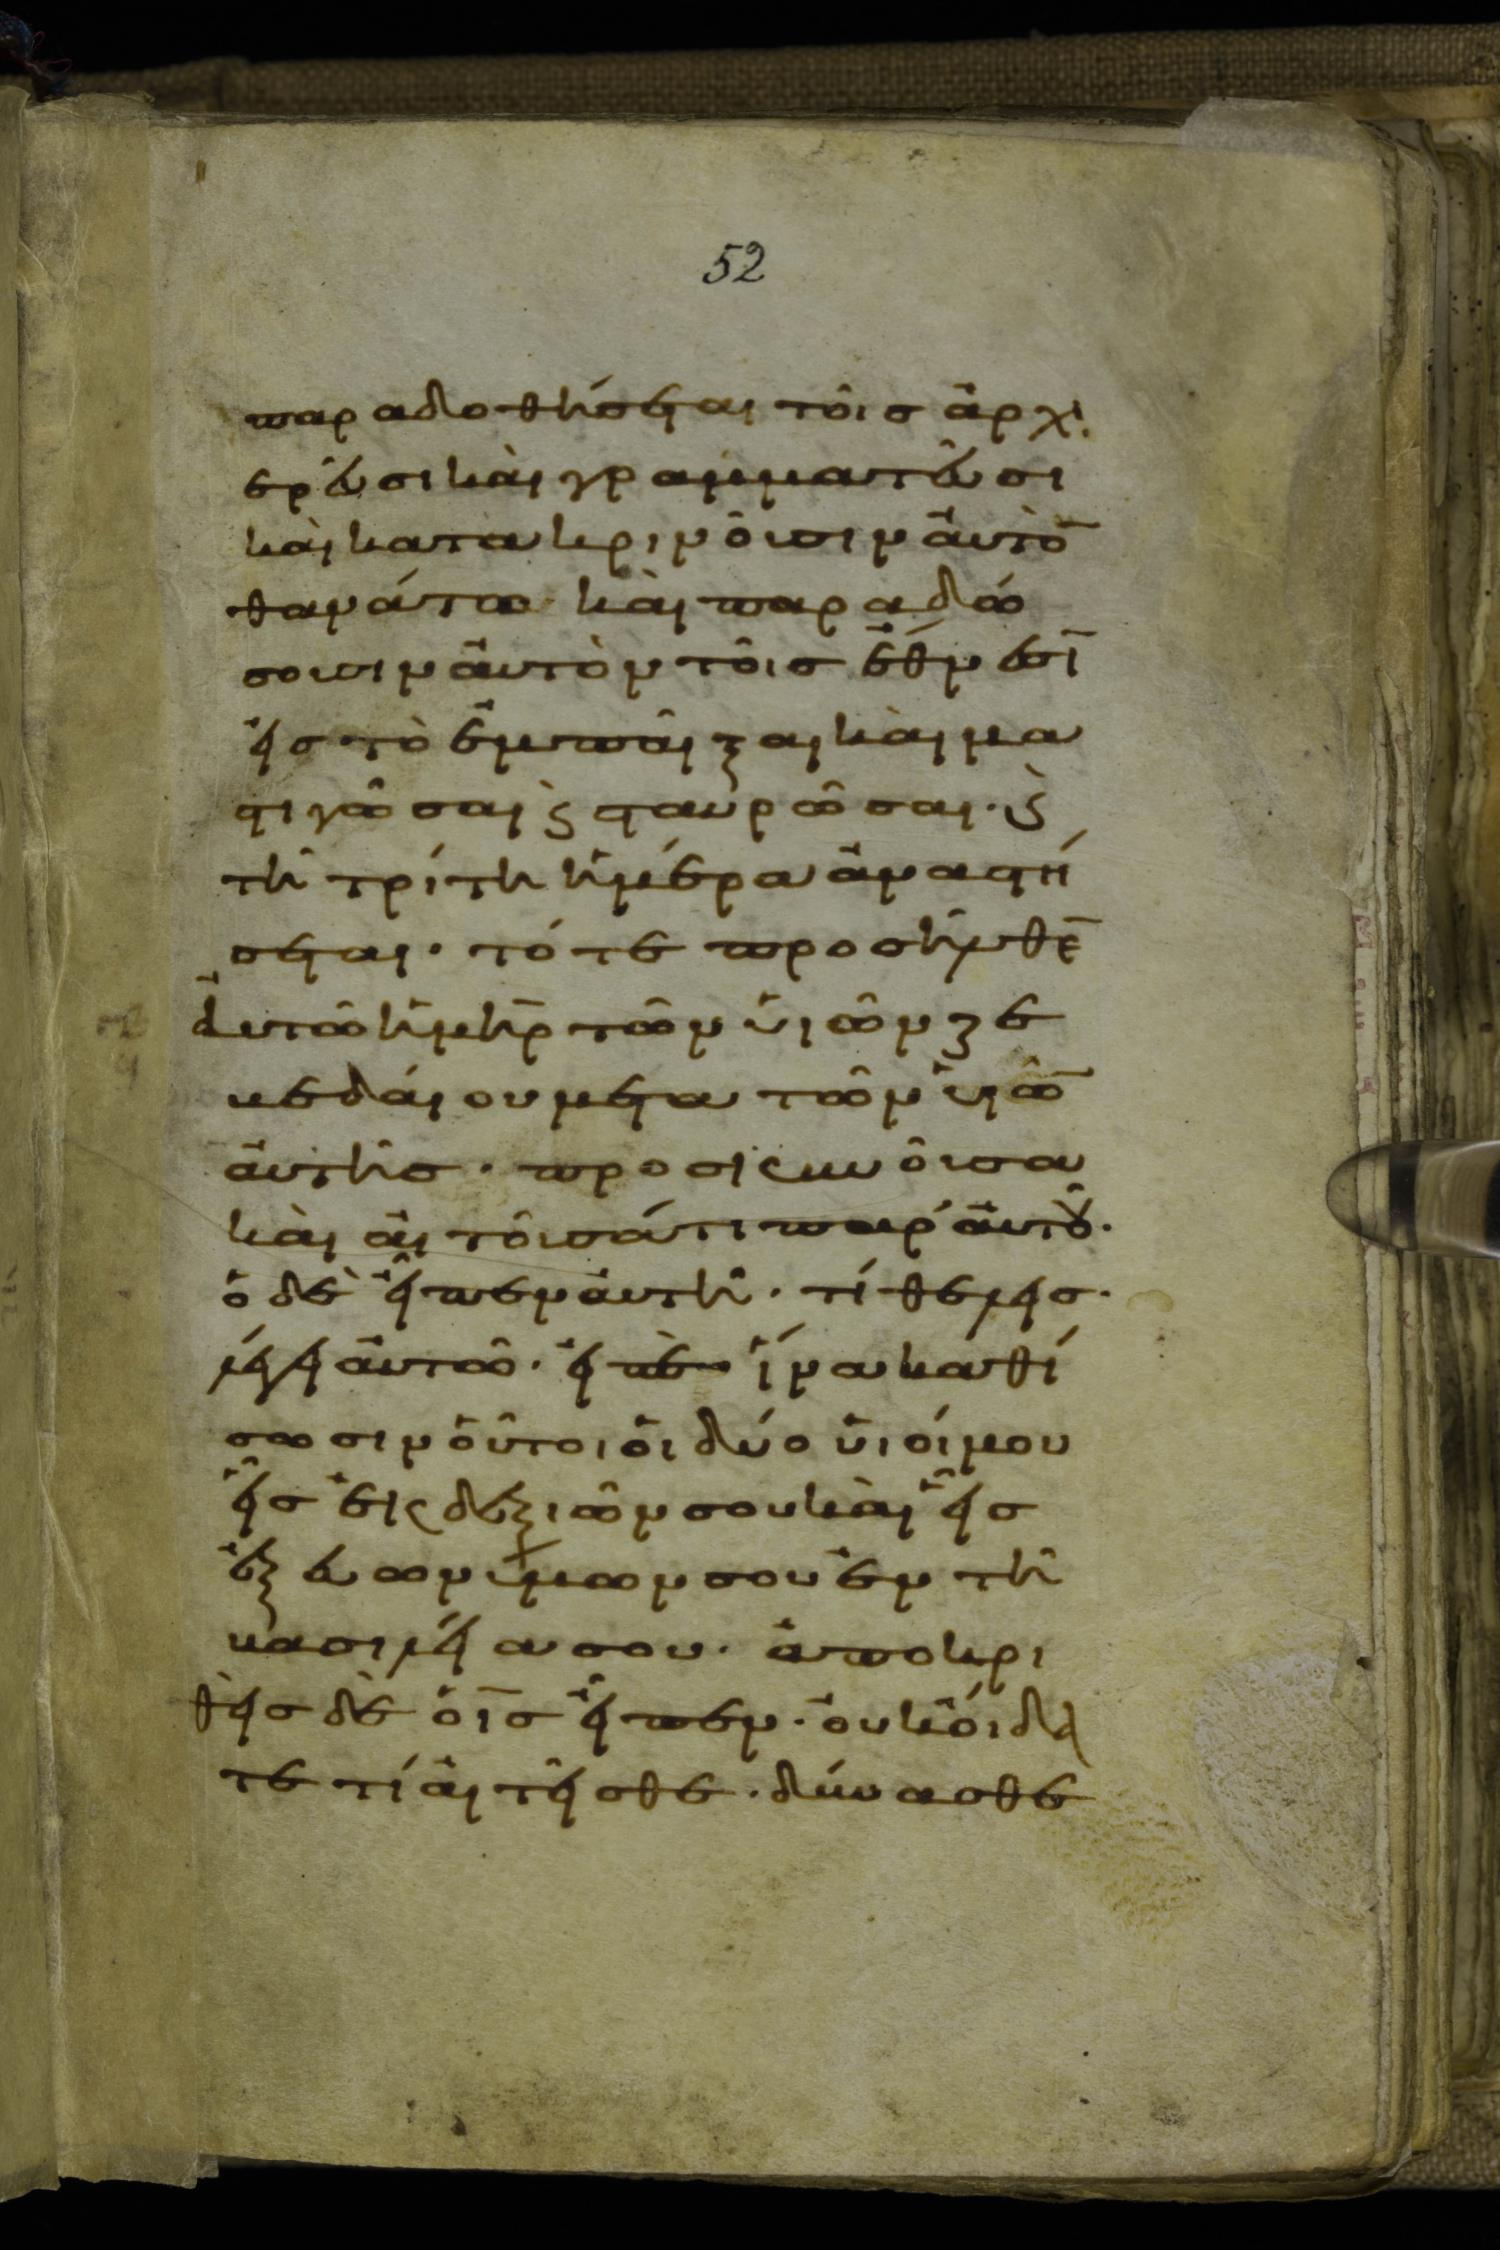 52
παραδοθήσεται τοῖς ἀρχι
ερεῦσι καὶ γραμματεῦσι
καὶ κατακρινοῦσιν αὐτὸ̅
θανάτω· καὶ παραδώ
σουσιν αὐτὸν τοῖς ἔθνεσῑ
εἰς τὸ ἐμπαῖξαι καὶ μα
στιγῶσαι ϗ σταυρῶσαι· ϗ
τῆ τρίτη ἡμέρα ἀναστή
σεται· τότε προσῆλθε̅
αὐτῶ ἡ μη̅ρ τῶν υἱῶν ζε
βεδαίου μετὰ τῶν υἱῶ̅
αὐτῆς· προσκυνοῦσα
καὶ αἰτοῦσά τι παρ' αὐτοῦ·
ὁ δὲ εἶπεν αὐτῆ· τί θέλεις·
λέγει αὐτῶ· εἰπὲ ἵνα καθί
σωσιν οὗτοι οἱ δύο υἱοί μου
εἷς ἐκ δεξιῶν σου καὶ εἷς
ἐξ εὐωνύμων σου ἐν τῆ
βασιλεία σου· ἀποκρι
θεὶς δὲ ὁ ι̅ς εἶπεν· οὐκ οἴδα
τε τί αἰτεῖσθε· δύνασθε